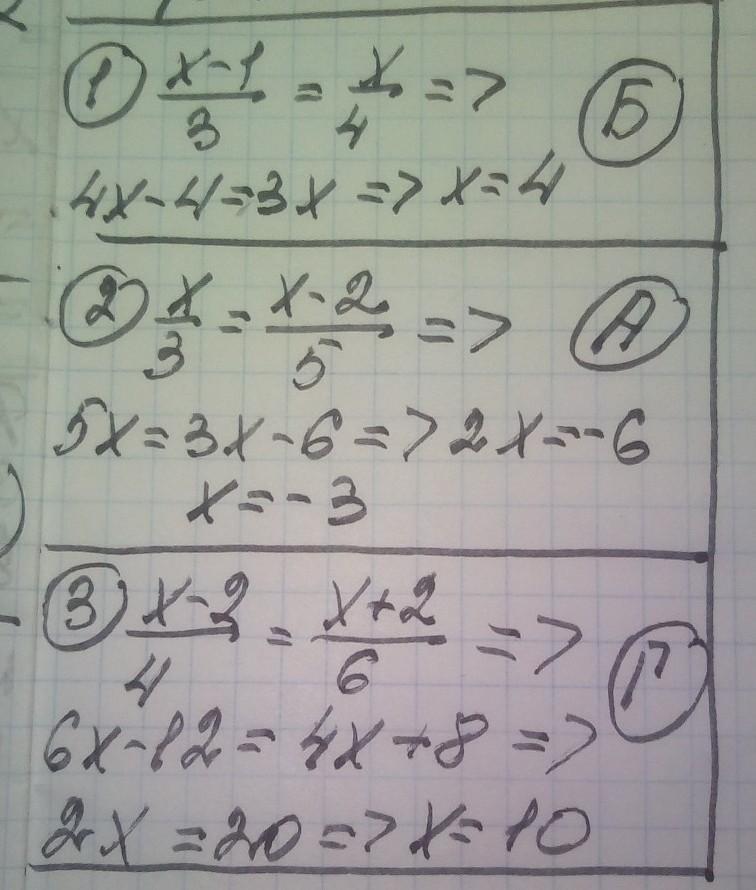 ① x-1/3 = x/4 => Б
4x-4=3x => x=4
② x/3 = x-2/5 => А
5x=3x-6=>2x=-6
x=-3
③ x-2/4 = x+2/6 => Г
6x-12=4x+8 =>
2x=20=>x=10